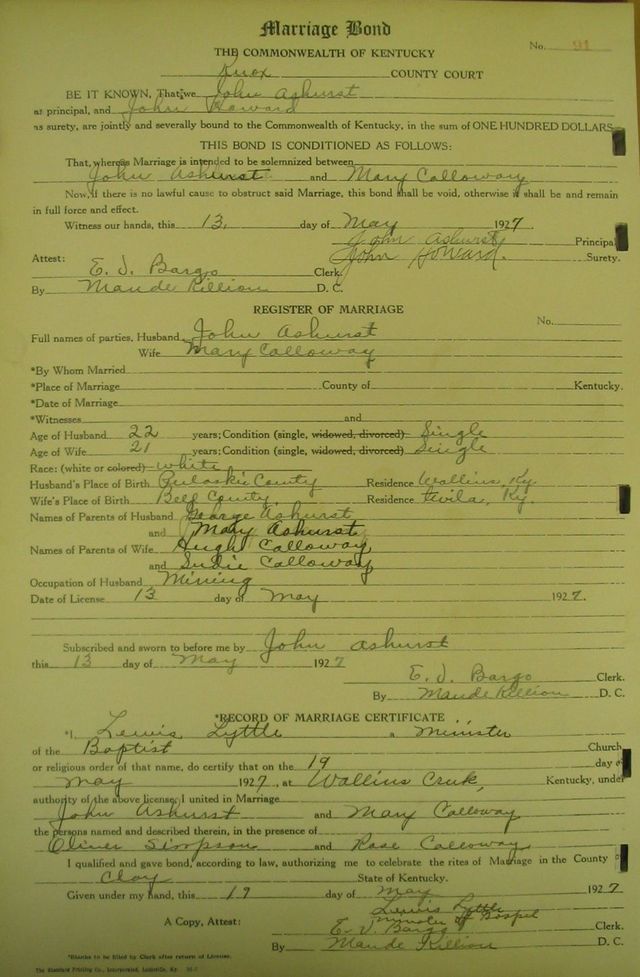 Marriage Bond
No. 91
THE COMMONWEALTH OF KENTUCKY
Knox COUNTY COURT
BE IT KNOWN, That we John Ashurst
as principal, and John Howard
as surety, are jointly and severally bound to the Commonwealth of Kentucky, in the sum of ONE HUNDRED DOLLARS
THIS BOND IS CONDITIONED AS FOLLOWS:
That, whereas Marriage is intended to be solemnized between
John Ashurst and Mary Calloway
Now, if there is no lawful cause to obstruct said Marriage, this bond shall be void, otherwise it shall be and remain
in full force and effect.
Witness our hands, this 13, day of May 1927
John Ashurst Principal
John Howard. Surety.
Attest:
E. J. Bargo Clerk
By Maude Killion D. C.
REGISTER OF MARRIAGE
No.
Full names of parties, Husband John Ashurst
Wife Mary Calloway
*By Whom Married
*Place of Marriage County of Kentucky.
*Date of Marriage
*Witnesses and
Age of Husband 22 years; Condition (single, widowed, divorced) Single
Age of Wife 21 years; Condition (single, widowed, divorced) Single
Race: (white or colored) white
Husband's Place of Birth Pulaski County Residence Wallins, Ky.
Wife's Place of Birth Bell County Residence Ky.
Names of Parents of Husband George Ashurst
and Mary Ashurst
Names of Parents of Wife Hugh Calloway
and Sudie Calloway
Occupation of Husband Mining
Date of License 13 day of May 1927.
Subscribed and sworn to before me by John Ashurst
this 13 day of May 1927
E. J. Bargo Clerk.
By Maude Killion D. C.
*RECORD OF MARRIAGE CERTIFICATE
*I, Lewis Lyttle a Minister
of the Baptist Church
or religious order of that name, do certify that on the 19 day of
May 1927, at Wallins Creek, Kentucky, under
authority of the above license, I united in Marriage
John Ashurst and Mary Calloway
the persons named and described therein, in the presence of
Oliver Simpson and Rose Calloway
I qualified and gave bond, according to law, authorizing me to celebrate the rites of Marriage in the County of
Clay State of Kentucky.
Given under my hand, this 19 day of May 1927
Lewis Lyttle
Minister of Gospel
A Copy, Attest: E. J. Bargo Clerk
By Maude Killion D. C.
*Blanks to be filled by Clerk after return of License.
The Standard Printing Co., Incorporated, Louisville, Ky.